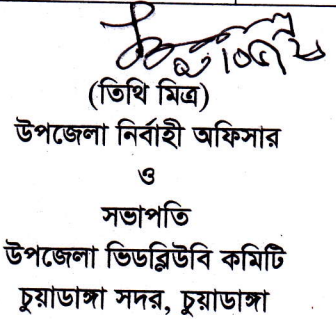 (তিথি মিত্র)
উপজেলা নির্বাহী অফিসার
ও
সভাপতি
উপজেলা ভিডব্লিউবি কমিটি
চুয়াডাঙ্গা সদর, চুয়াডাঙ্গা